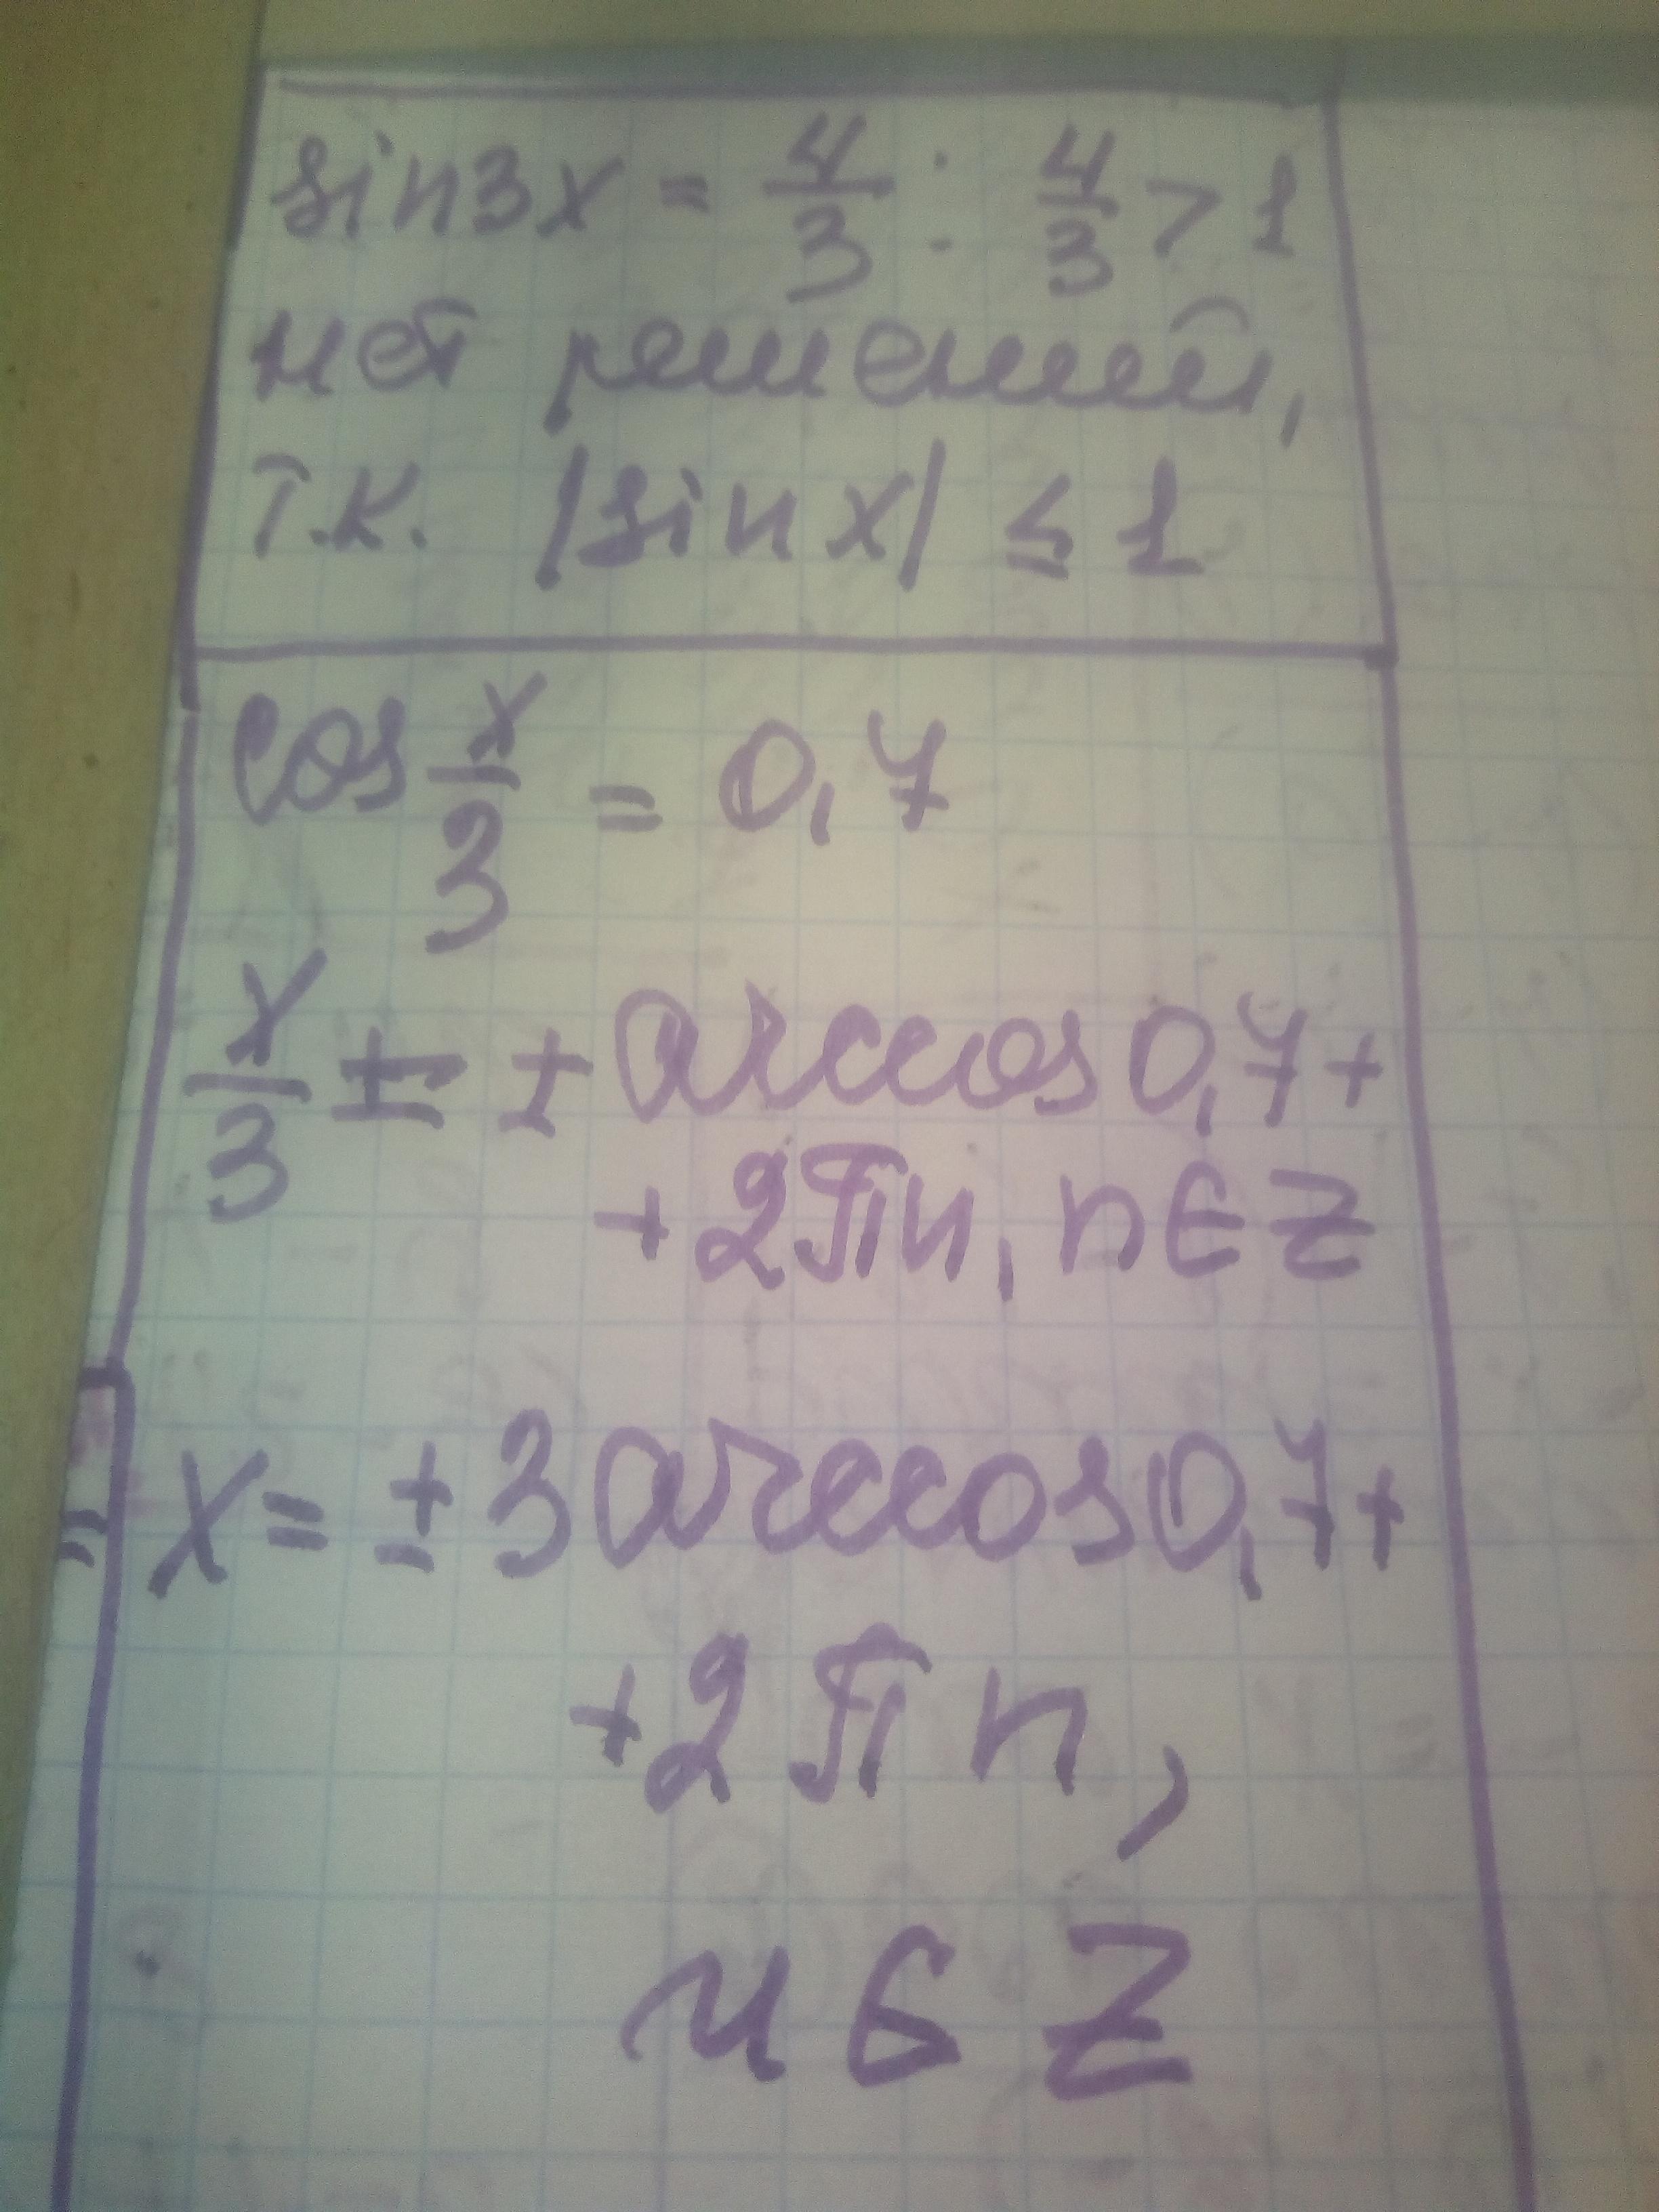 sin3x = 4/3 : 4/3 > 1
нет решений,
т.к. |sin x| ≤ 1
cos x/3 = 0,7
x/3 = ± arccos 0,7 +
+ 2πn, n ∈ Z
x = ± 3 arccos 0,7 +
+ 2πn,
n ∈ Z